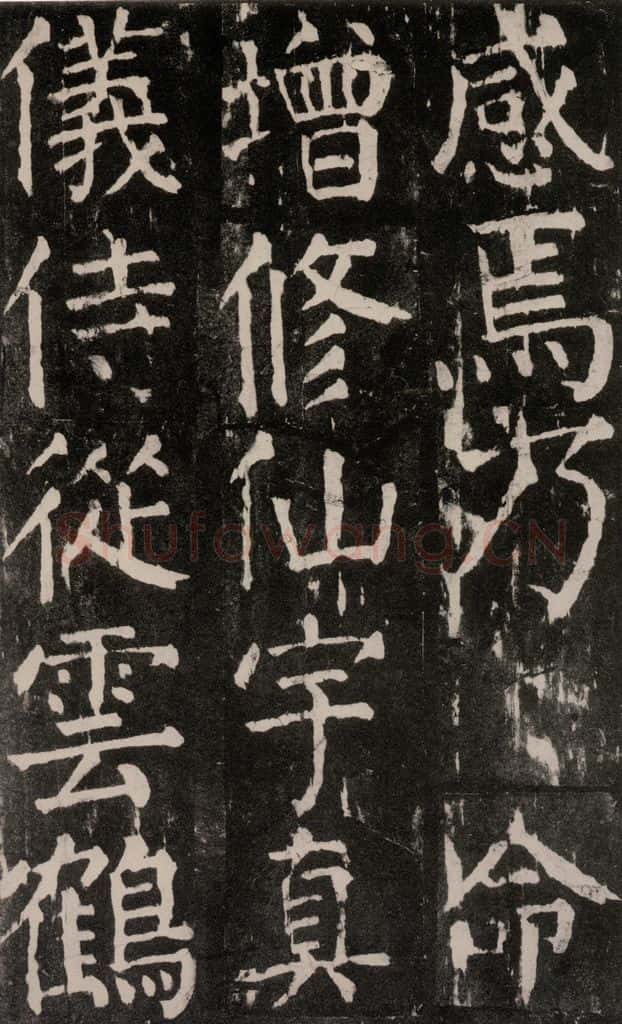 感焉乃命
增修仙宇真
儀侍從雲鶴
Shufawang.CN